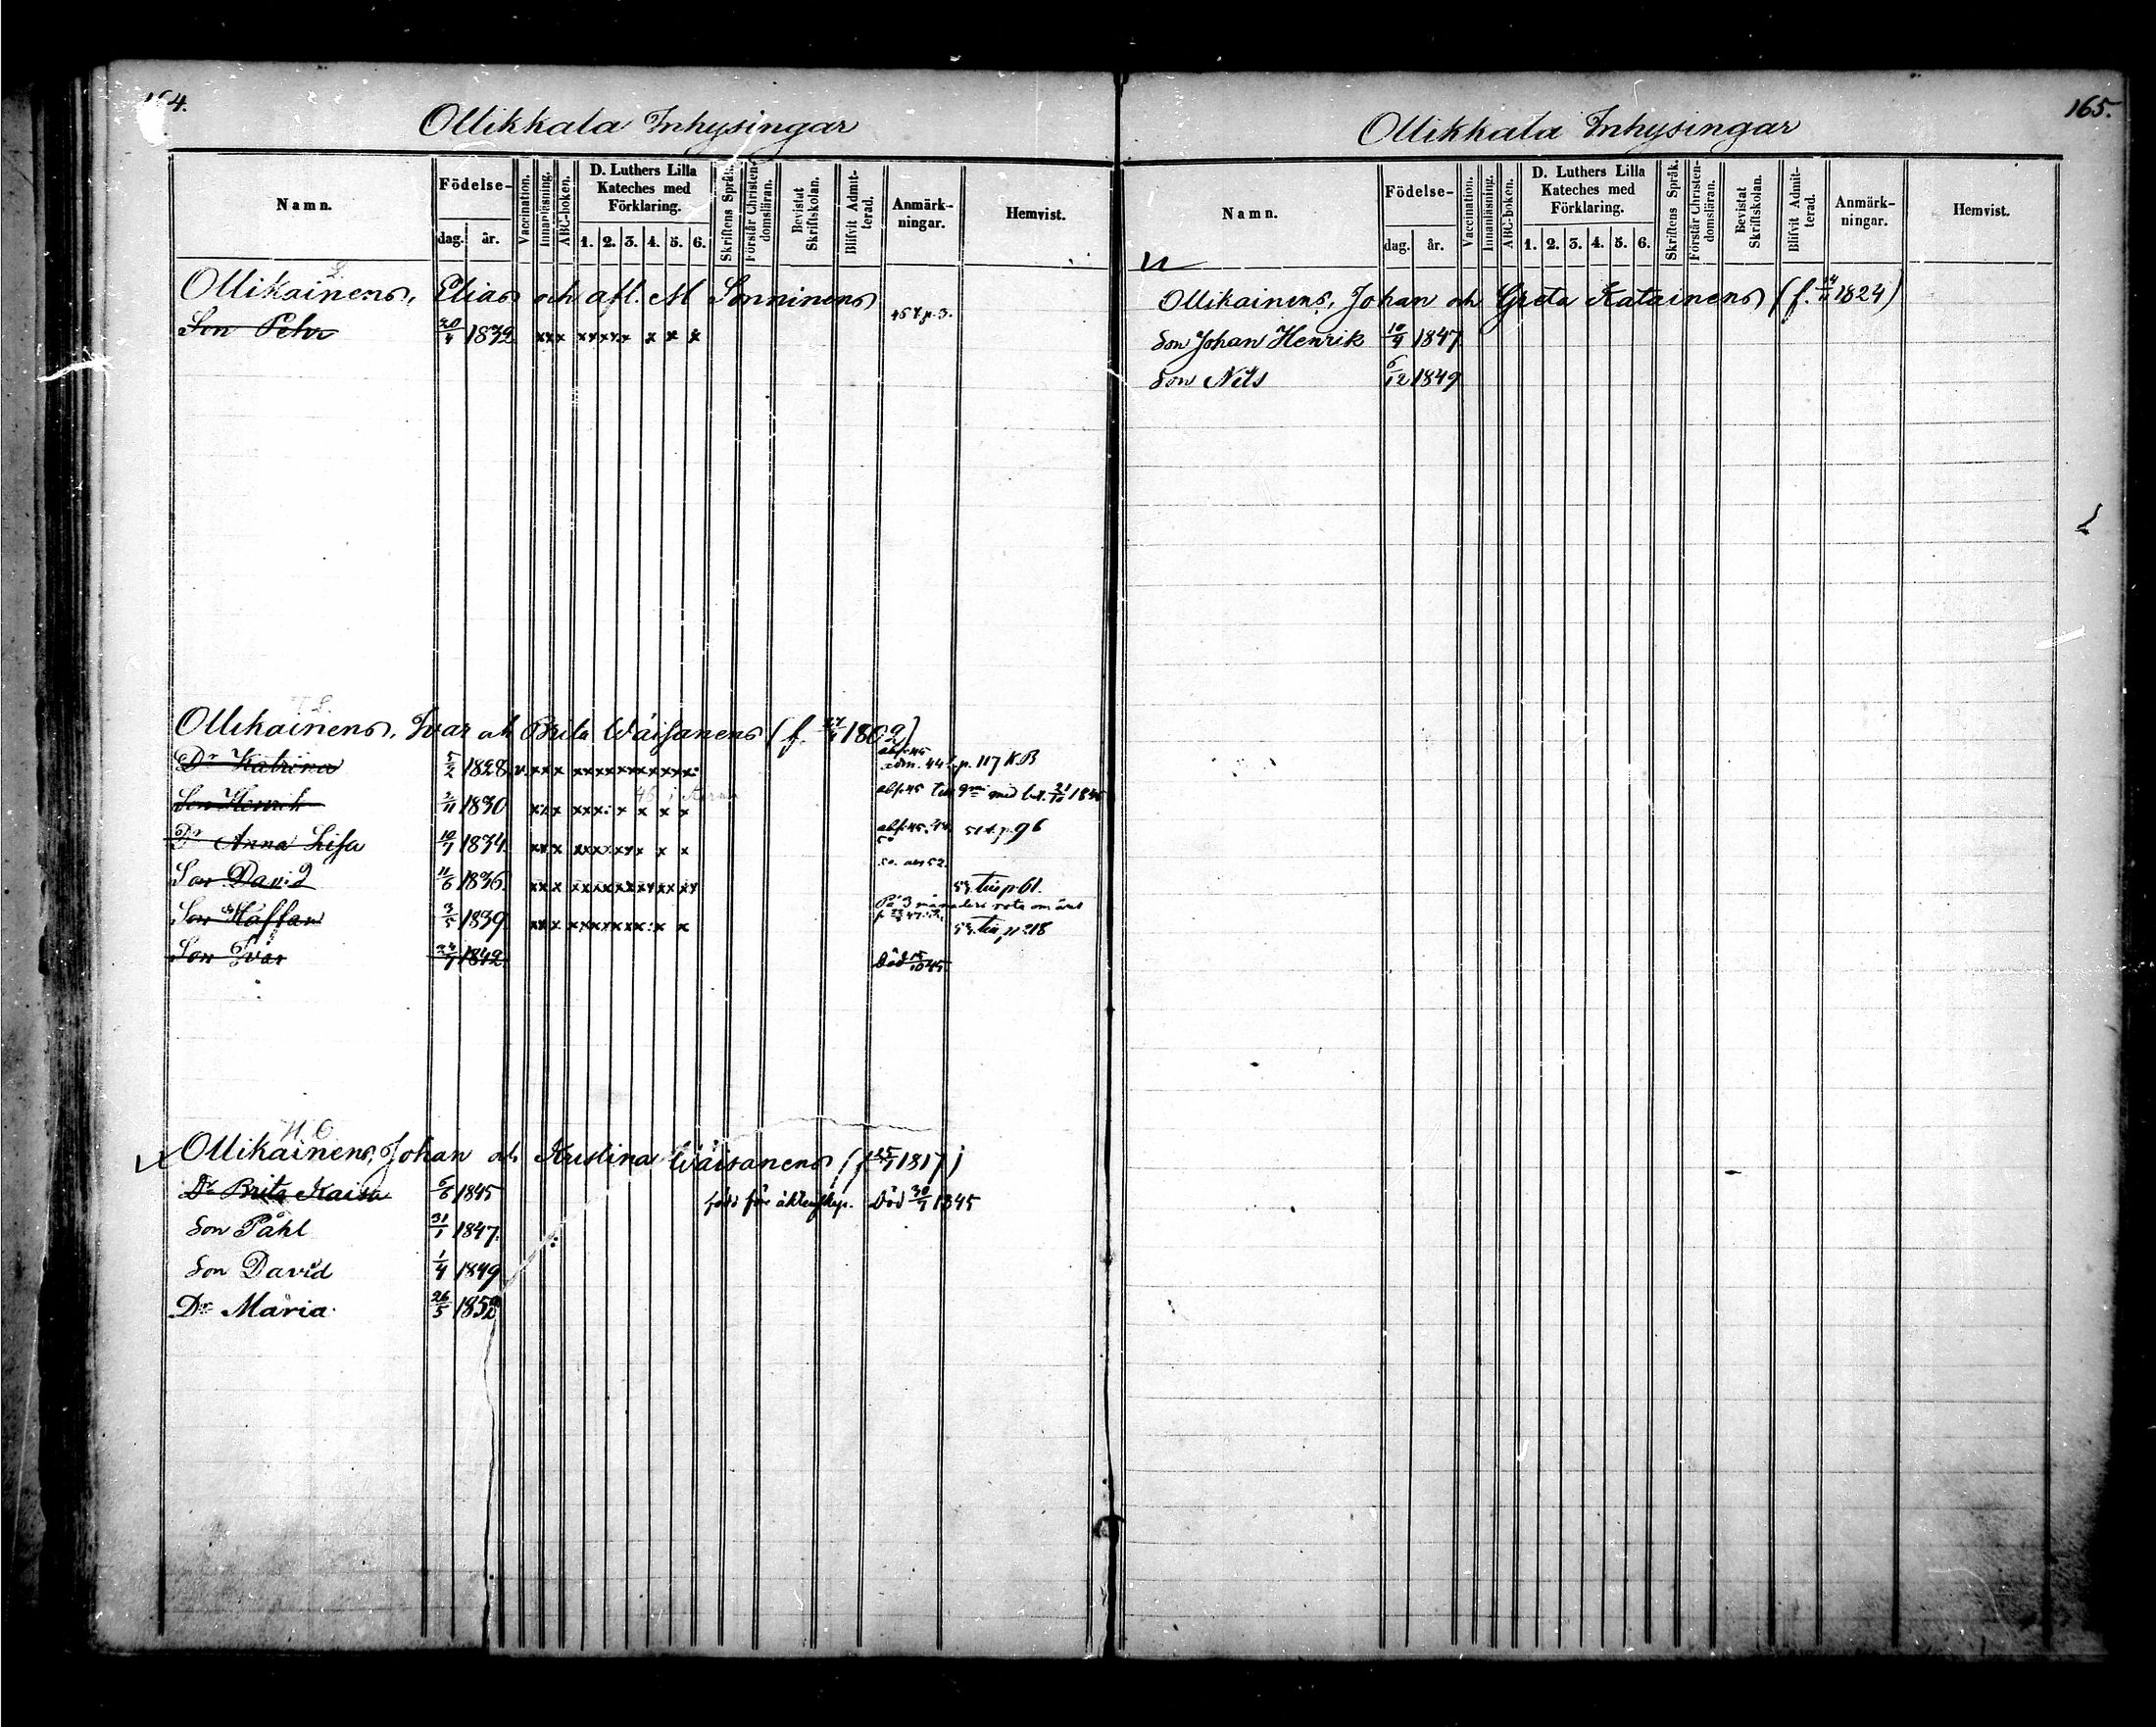 164.
Ollikkala Inhysingar
Namn.
Födelse-
dag. år.
Vaccination.
Innanläsning.
ABC-boken.
D. Luthers Lilla
Kateches med
Förklaring.
1. 2. 3. 4. 5. 6.
Skriftens Språk.
Förstår Christen-
domsläran.
Bevistat
Skriftskolan.
Blifvit Admit-
terad.
Anmärk-
ningar.
Hemvist.
Ollikainens, Elias och afl. M Sonninens
Son Pehr 20/4 1832 xxx xxxxx x x x 45 t. p. 3.
Ollikainens, Ivar och Brita Wäisänens (f. 1802)
Dr Katrina 5/2 1828 v. xxx xxxxxxxxxxx p. 117 K.B
Son Henrik 2/11 1830 xxx xxx: x x x x
Dr Anna Lisa 10/7 1834. xxx xxxxxx x x 51 t. p. 96
Son David 11/6 1836. xxx xxxxxxxxxxx 53. tin p. 61.
Son Staffan 3/5 1839. xxx xxxxxxx: x x På 3 månaders 53. tin p 218
Son Ivar 24/7 1842. Död 15/10 45.
Ollikainens, Johan och Kristina Wäisänens (f 25/1 1817)
Dr Brita Kaisa 6/6 1845 född före äktenskap. Död 30/7 1845
Son Påhl 31/1 1847.
Son David 1/4 1849
Dr Maria 26/5 1852
165.
Ollikkala Inhysingar
Namn.
Födelse-
dag. år.
Vaccination.
Innanläsning.
ABC-boken.
D. Luthers Lilla
Kateches med
Förklaring.
1. 2. 3. 4. 5. 6.
Skriftens Språk.
Förstår Christen-
domsläran.
Bevistat
Skriftskolan.
Blifvit Admit-
terad.
Anmärk-
ningar.
Hemvist.
Ollikainens, Johan och Greta Katainens (f. 1824)
Son Johan Henrik 10/9 1847.
Son Nils 6/12 1849